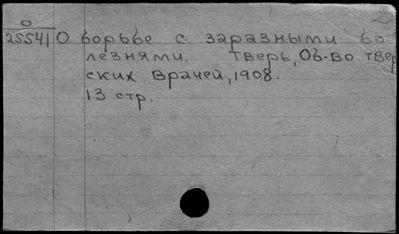 О
25541 О борьбе с заразными бо
лезнями. Тверь, Об-во твер
ских врачей, 1908.
13 стр.